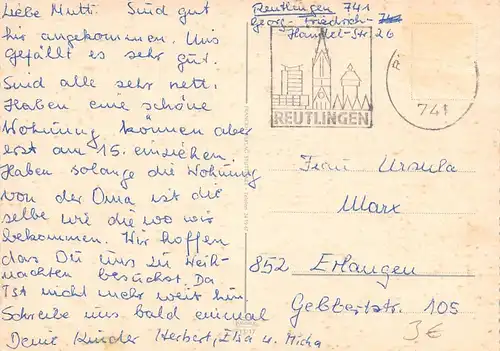 Liebe Mutti. Sind gut
hir angekommen. Uns
gefällt es sehr gut.
Sind alle sehr nett.
Haben eine schöne
Wohnung können aber
erst am 15. einziehen.
Haben solange die Wohnung
von der Oma ist die
selbe wie die wo wir
bekommen. Wir hoffen
das Du uns zu Weih-
nachten besuchst. Da
Ist nicht mehr weit hin.
Schreibe uns bald einmal
Deine Kinder Herbert, Elsa u. Micha
Reutlingen 741
Georg-Friedrich-
Händel-Str. 26
REUTLINGEN
741
Frau Ursula
Marx
852 Erlangen
Gebbertstr. 105
3€